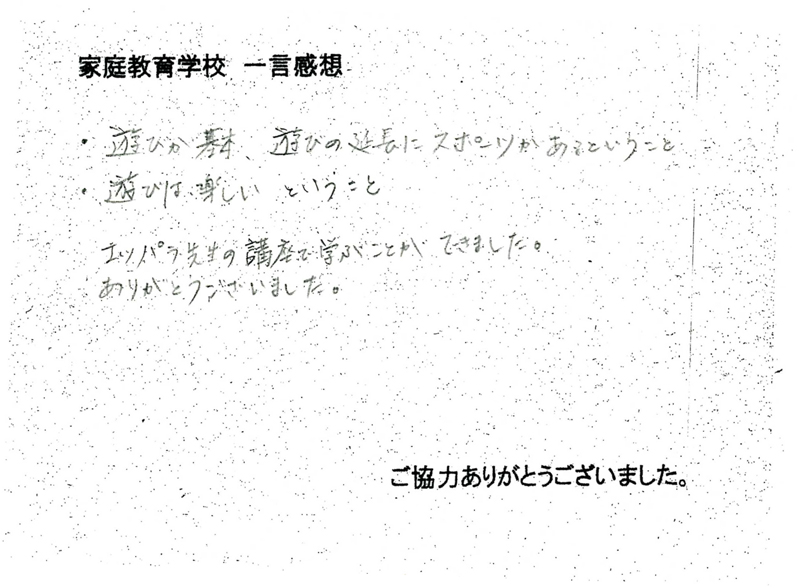 家庭教育学校 一言感想
・遊びが基本、遊びの延長にスポーツがあるということ
・遊びは、楽しい ということ
エツパラ先生の講座で学ぶことができました。
ありがとうございました。
ご協力ありがとうございました。